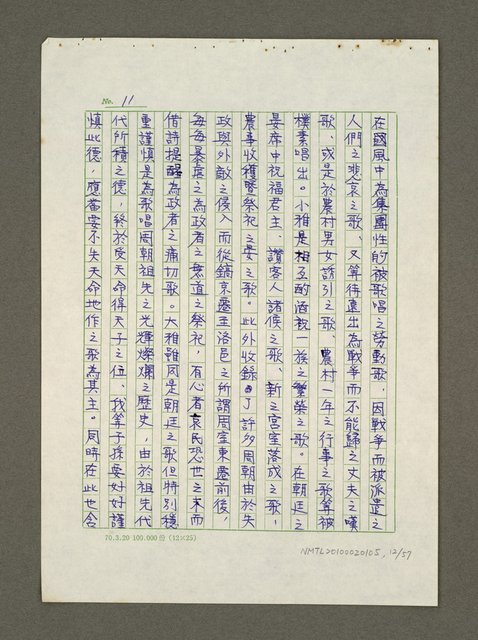 No. 11
在國風中為集團性的被歌唱之勞動歌，因戰爭而被派遣之
人們之悲哀之歌、又等待遠出為戰爭而不能歸之丈夫之嘆
歌、或是於農村男女誘引之歌、農村一年之行事之歌等被
樸素唱出。小雅是相互酌酒祝一族之繁榮之歌。在朝廷之
宴席中祝福君主、讚客人諸侯之歌、新之宮室落成之歌，
農事收穫暨祭祀之宴之歌。此外收錄了許多周朝由於失
政與外敵之侵入而從鎬京遷至洛邑之所謂周室東遷前後，
每每暴虐之為政者之無道之祭祀，有心者哀民恐世之末而
借詩提醒為政者之痛切歌。大雅雖同是朝廷之歌但特別穩
重謹慎是為歌唱周朝祖先之光輝燦爛之歷史，由於祖先代
代所積之德，終於受天命得天子之位、我等子孫要好好謹
慎此德，應當要不失天命地作之歌為其主。同時在此也含
70.3.20 100.000份（12×25）
NMTL20100020105, 12/57